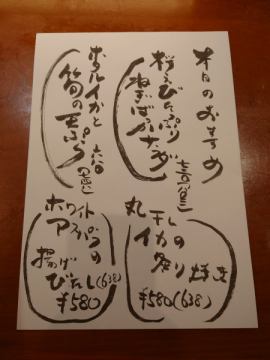 本日のおすすめ
桜えびたっぷり
ねぎばっかたぬ
ホタルイカと
筍の天ぷら
丸干し
イカの
炙り焼き
¥580(638)
ホワイト
アスパラの
揚げ
びたし(638)
¥580